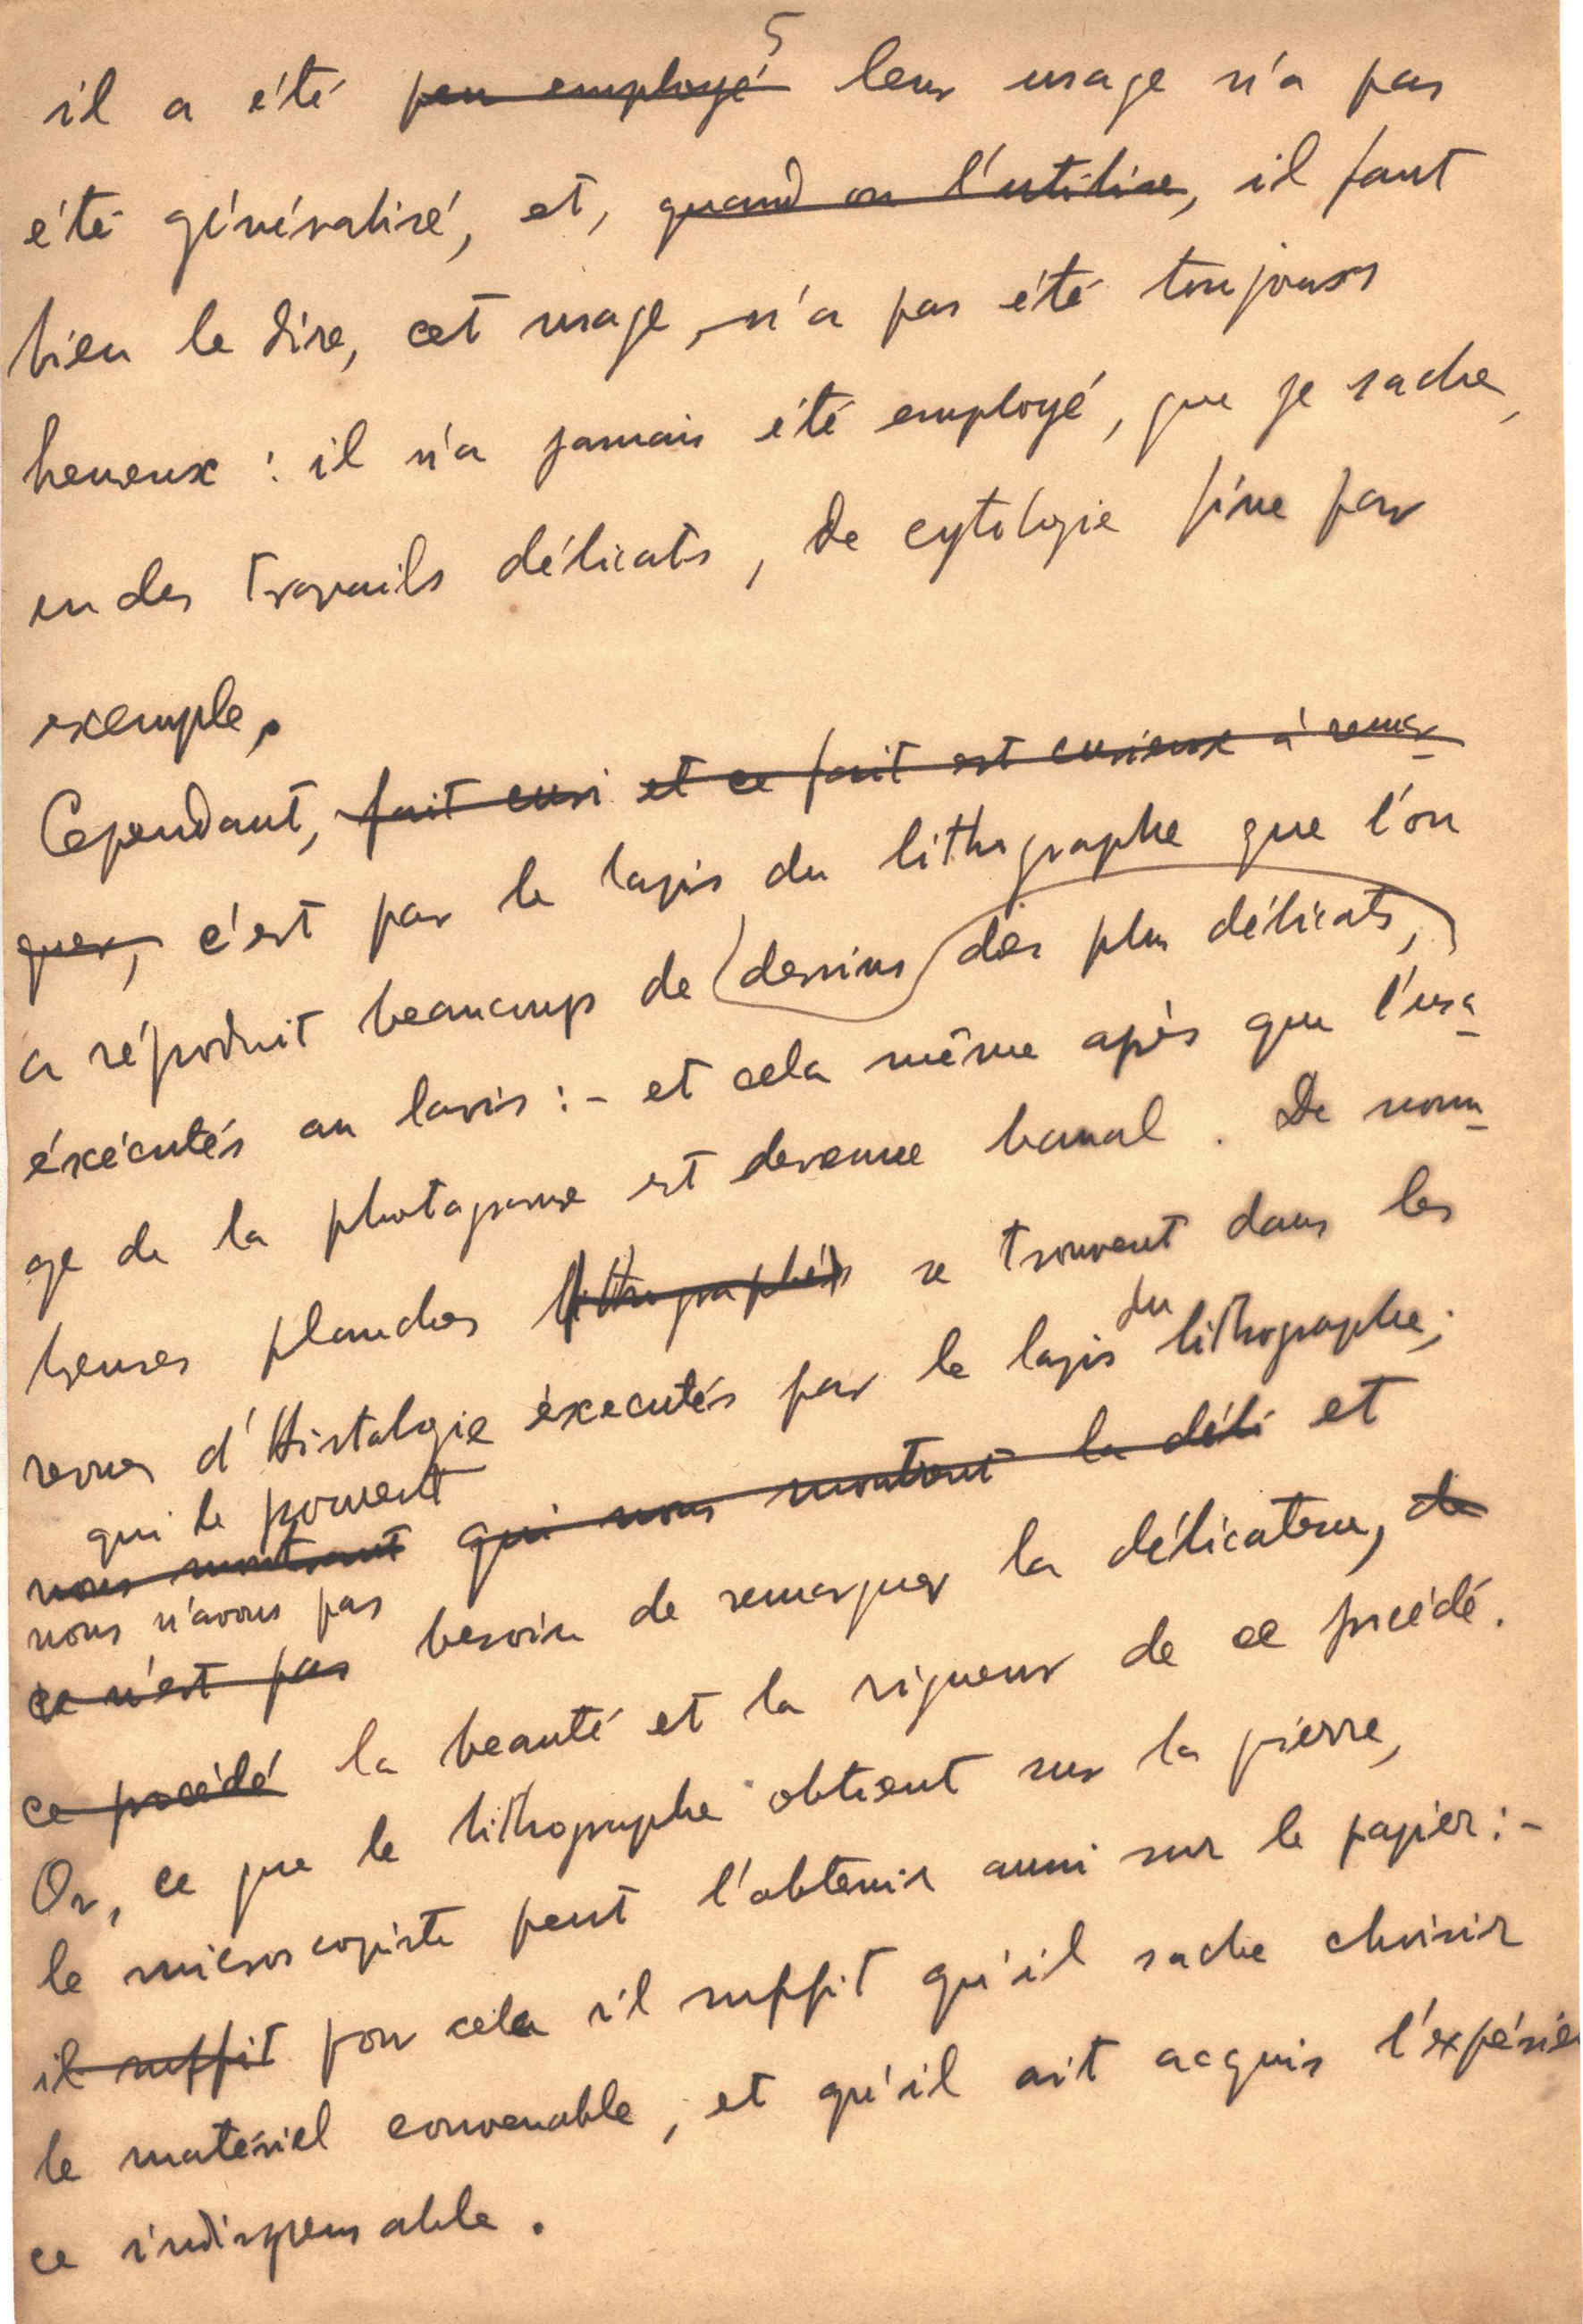 5
il a été peu employé leur usage n'a pas
été généralisé, et, quand on l'utilise, il faut
bien le dire, cet usage, n'a pas été toujours
heureux : il n'a jamais été employé, que je sache,
en des travails délicats, de cytologie fine par
exemple.
Cependant, fait curi et ce fait est curieux à remar-
quer, c'est par le lapis du lithographe que l'on
a réproduit beaucoup de dessins des plus délicats,
éxécutés au lavis :- et cela même après que l'usa-
ge de la est devenue banal. De nom-
breuses planches lithographiés se trouvent dans les
revues d'Histologie éxecutés par le lapis du lithographe;
qui le prouvent
nous montrant qui nous montrent la déli et
nous n'avons pas
ce n'est pas besoin de remarquer la délicatesse, de
ce procédé la beauté et la rigueur de ce procédé.
Or, ce que le lithographe obtient sur la pierre,
le microscopiste peut l'obtenir aussi sur le papier :-
il suffit pour cela il suffit qu'il sache choisir
le matériel convenable, et qu'il ait acquis l'expérien
ce indispensable.